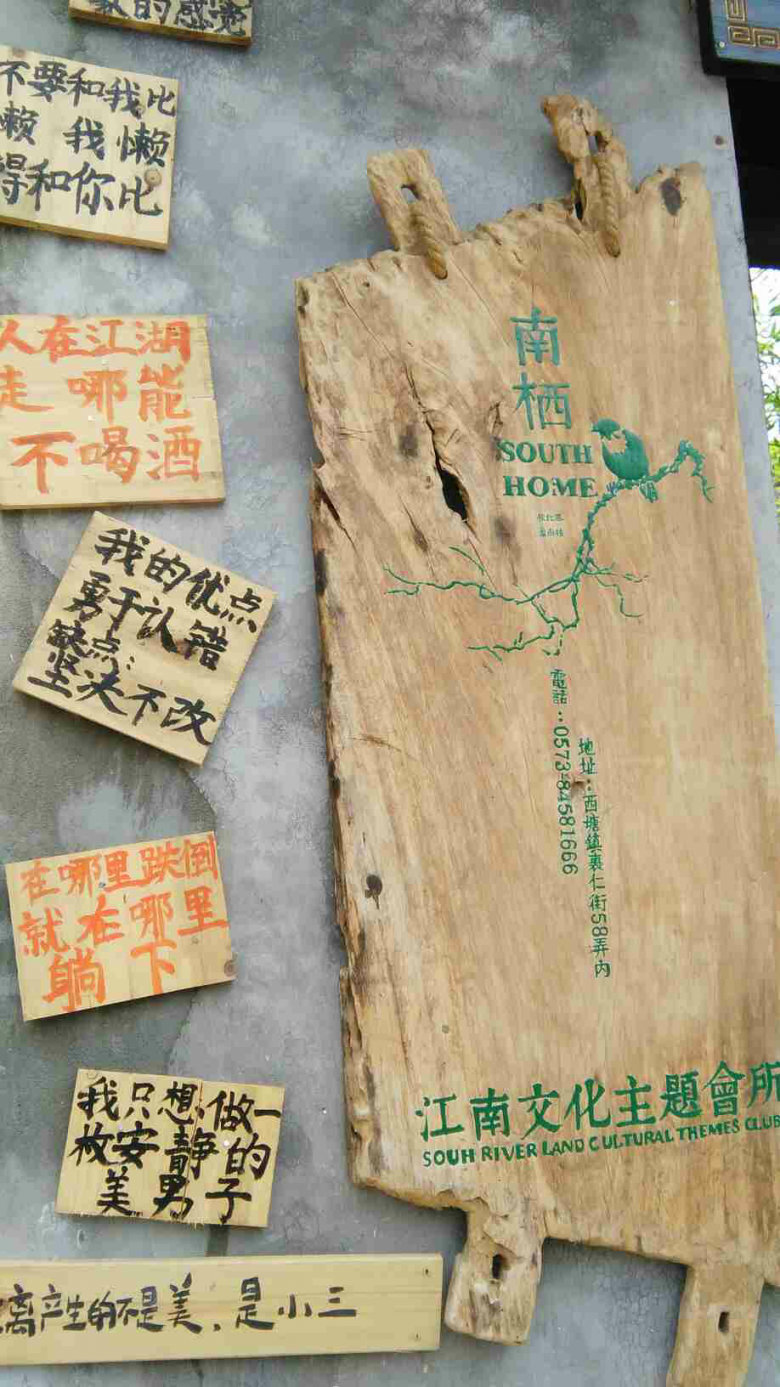 的感觉
不要和我比
懒 我懒
得和你比
人在江湖
走 哪能
不喝酒
我的优点
勇于认错
缺点:
坚决不改
在哪里跌倒
就在哪里
躺下
我只想做一
枚安静的
美男子
离产生的不是美,是小三
南
栖
SOUTH
HOME
電話:0573-84581666
地址:西塘鎮裏仁街58弄內
江南交化主題會所
SOUH RIVER LAND CULTURAL THEMES CLUB